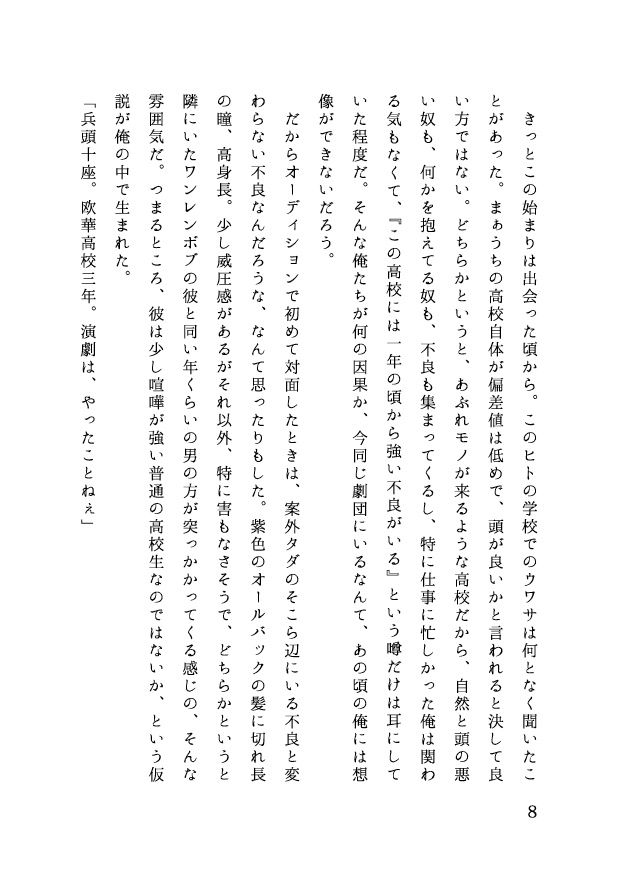 きっとこの始まりは出会った頃から。このヒトの学校でのウワサは何となく聞いたこ
とがあった。まぁうちの高校自体が偏差値は低めで、頭が良いかと言われると決して良
い方ではない。どちらかというと、あぶれモノが来るような高校だから、自然と頭の悪
い奴も、何かを抱えてる奴も、不良も集まってくるし、特に仕事に忙しかった俺は関わ
る気もなくて、『この高校には一年の頃から強い不良がいる』という噂だけは耳にして
いた程度だ。そんな俺たちが何の因果か、今同じ劇団にいるなんて、あの頃の俺には想
像ができないだろう。
だからオーディションで初めて対面したときは、案外タダのそこら辺にいる不良と変
わらない不良なんだろうな、なんて思ったりもした。紫色のオールバックの髪に切れ長
の瞳、高身長。少し威圧感があるがそれ以外、特に害もなさそうで、どちらかというと
隣にいたワンレンボブの彼と同い年くらいの男の方が突っかかってくる感じの、そんな
雰囲気だ。つまるところ、彼は少し喧嘩が強い普通の高校生なのではないか、という仮
説が俺の中で生まれた。
「兵頭十座。欧華高校三年。演劇は、やったことねぇ」
8